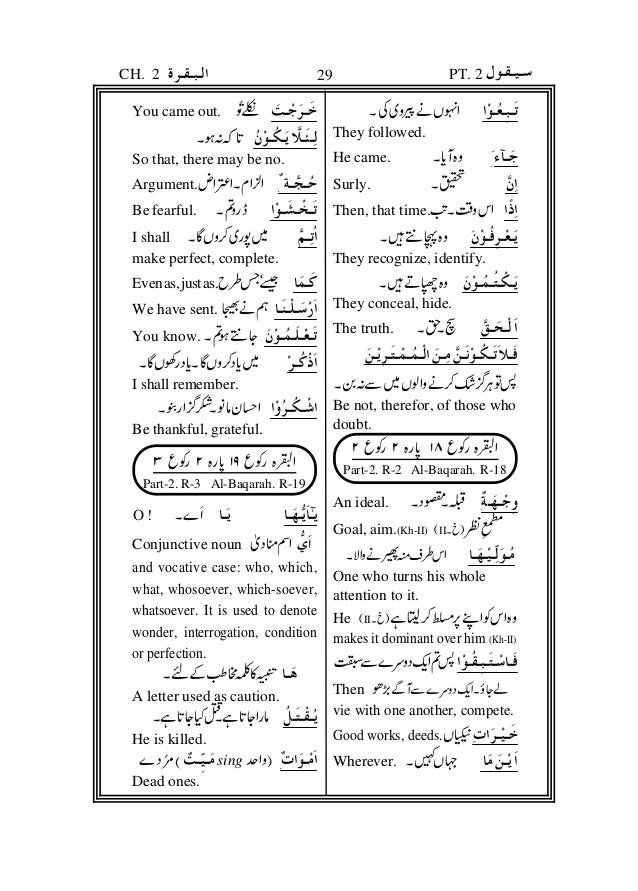 CH. 2 البقرة 29 PT. 2 سيقول
تَبِعُوْا انہوں نے پیروی کی ۔
They followed.
جَآءَ وہ آیا۔ He came.
اِنَّ تحقیق۔ Surly.
اِذًا اس وقت۔ تب۔ Then, that time.
يَعْرِفُوْنَ وہ پہچانتے ہیں۔
They recognize, identify.
يَكْتُمُوْنَ وہ چھپاتے ہیں۔
They conceal, hide.
اَلْحَقَّ سچ۔ حق۔ The truth.
فَلَاتَكُوْنَنَّ مِنَ الْمُمْتَرِيْنَ
پس تو ہرگز شک کرنے والوں میں سے نہ بن ۔
Be not, therefor, of those who
doubt.
البقرہ رکوع ١٨ پارہ ٢ رکوع ٢
Part-2. R-2 Al-Baqarah. R-18
وِجْهَةٌ قبلہ۔ مقصود۔ An ideal.
مطمعِ نظر (خ۔II) Goal, aim.(Kh-II)
مُوَلِّيْهَا اس طرف منہ پھیرنے والا۔
One who turns his whole
attention to it.
وہ اس کو اپنے پر مسلط کر لیتا ہے (خ۔II) He
makes it dominant over him (Kh-II)
فَاسْتَبِقُوْا پس تم ایک دوسرے سے سبقت
لے جاؤ۔ ایک دوسرے سے آگے بڑھو Then
vie with one another, compete.
خَيْرَاتِ نیکیاں Good works, deeds.
اَيْنَ مَا جہاں کہیں۔ Wherever.
خَرَجْتَ تُو نکلے You came out.
لِئَلَّا يَكُوْنَ تا کہ نہ ہو۔
So that, there may be no.
حُجَّةٌ الزام۔ اعتراض Argument.
تَخْشَوْا تم ڈرو۔ Be fearful.
اُتِمَّ میں پوری کروں گا۔ I shall
make perfect, complete.
كَمَا جیسے، جس طرح Even as, just as.
اَرْسَلْنَا ہم نے بھیجا We have sent.
تَعْلَمُوْنَ تم جانتے ہو۔ You know.
اَذْكُرْ میں یاد کروں گا۔ یاد رکھوں گا۔
I shall remember.
اشْكُرُوْا احسان مانو۔ شکر گزار بنو۔
Be thankful, grateful.
البقرہ رکوع ١٩ پارہ ٢ رکوع ٣
Part-2. R-3 Al-Baqarah. R-19
يٰٓاَيُّهَا يَا اَے۔ O !
اَيُّ اسم منادیٰ Conjunctive noun
and vocative case: who, which,
what, whosoever, which-soever,
whatsoever. It is used to denote
wonder, interrogation, condition
or perfection.
هَا تنبیہ کا کلمہ مخاطب کے لئے۔
A letter used as caution.
يُقْتَلُ مارا جاتا ہے۔ قتل کیا جاتا ہے۔
He is killed.
اَمْوَاتٌ (واحد sing مَيِّتٌ) مُردے
Dead ones.